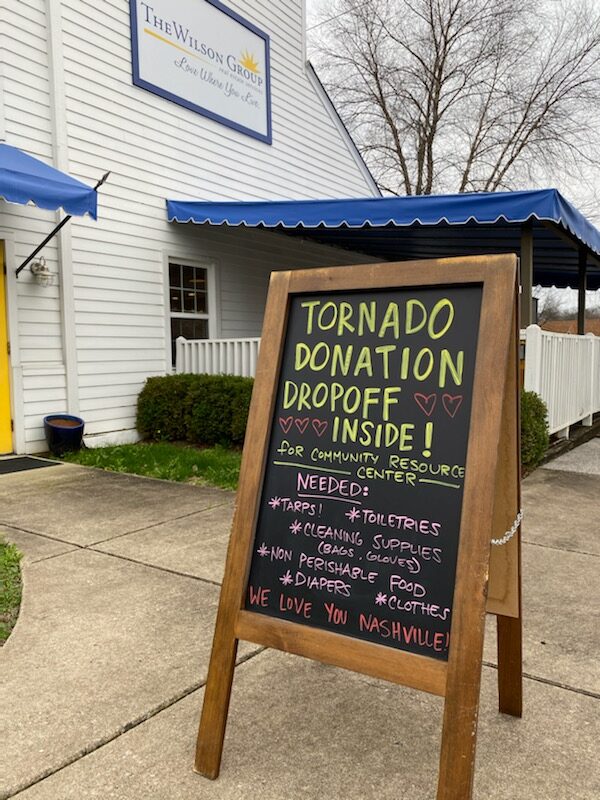 THE WILSON GROUP
real estate services
Love Where You Live.
TORNADO
DONATION
DROPOFF
INSIDE!
for COMMUNITY RESOURCE
CENTER
NEEDED:
*TARPS! *TOILETRIES
*CLEANING SUPPLIES
(BAGS, GLOVES)
*NON PERISHABLE FOOD
*DIAPERS *CLOTHES
WE LOVE YOU NASHVILLE!